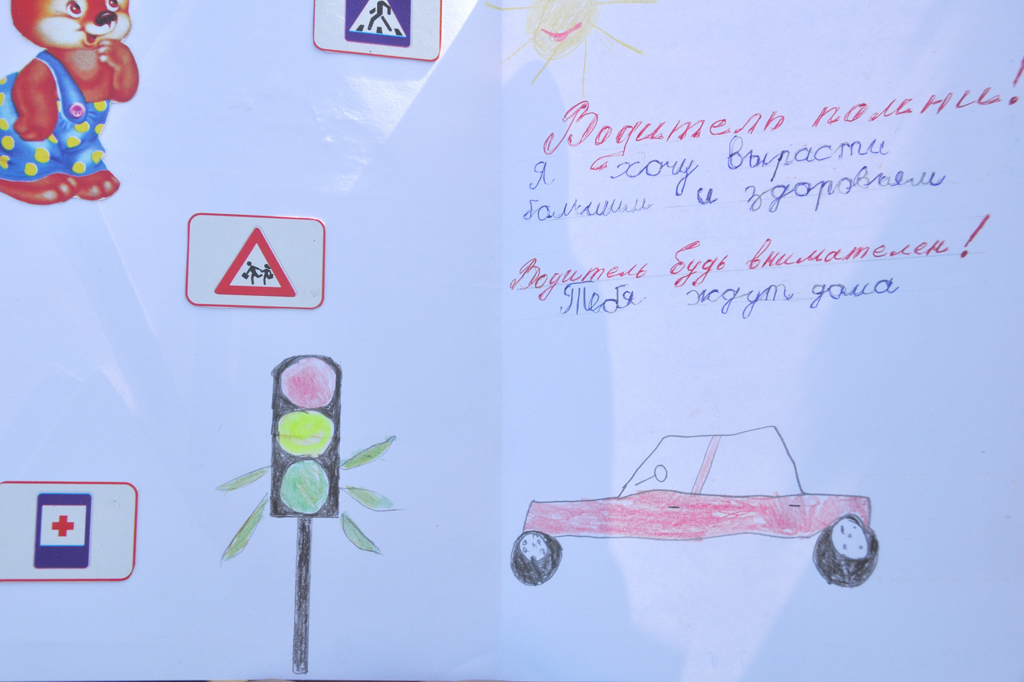 Водитель помни!
Я хочу вырасти
большим и здоровьем
Водитель будь внимателен!
Тебя ждут дома